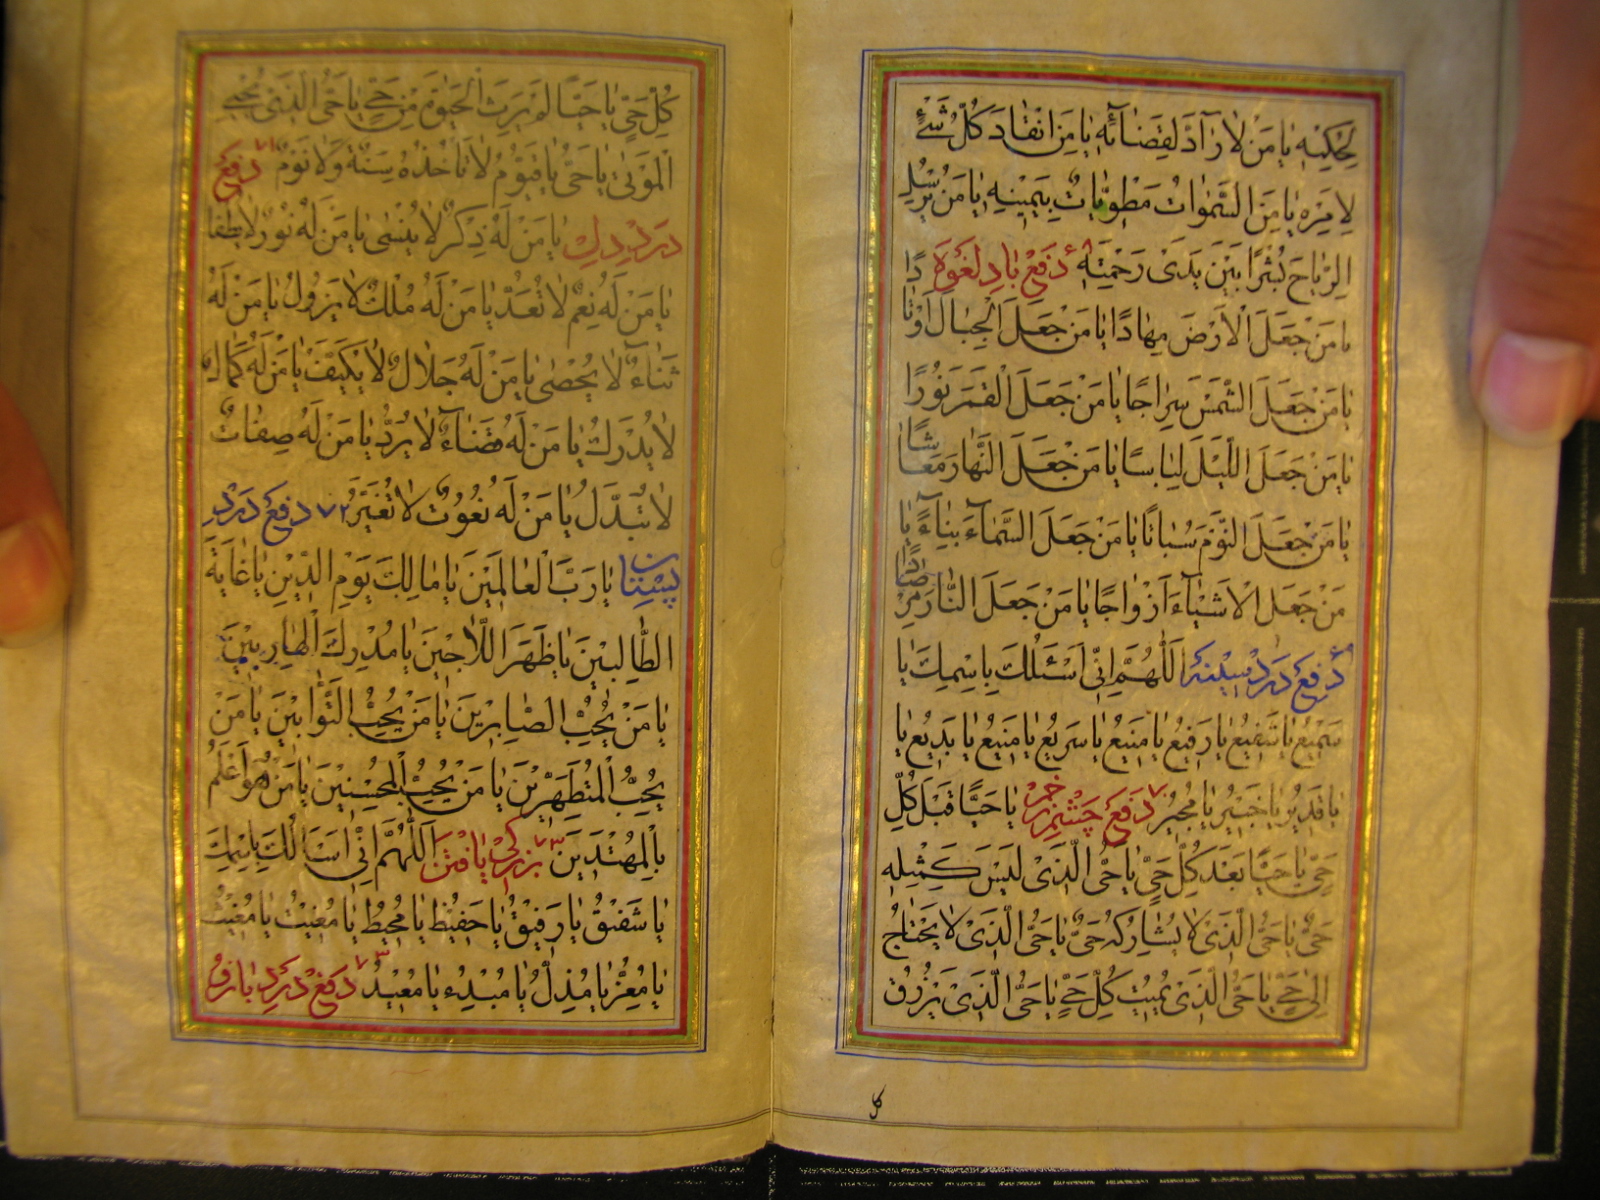 لِحُكْمِهِ يٰا مَنْ لاٰ رٰآدَّ لِقَضٰائِهِ يٰا مَنِ انْقٰادَ كُلُّ شَيْءٍ
لِاَمْرِهِ يٰا مَنِ السَّمٰوٰاتُ مَطْوِيّٰاتٌ بِيَمِينِهِ يٰا مَنْ يُرْسِلُ
الرِّيٰاحَ بُشْرًا بَيْنَ يَدَىْ رَحْمَتِهِ دفع باد لغوه
يٰا مَنْ جَعَلَ الْاَرْضَ مِهٰادًا يٰا مَنْ جَعَلَ الْجِبٰالَ اَوْتٰادًا
يٰا مَنْ جَعَلَ الشَّمْسَ سِرٰاجًا يٰا مَنْ جَعَلَ الْقَمَرَ نُورًا
يٰا مَنْ جَعَلَ اللَّيْلَ لِبٰاسًا يٰا مَنْ جَعَلَ النَّهٰارَ مَعٰاشًا
يٰا مَنْ جَعَلَ النَّوْمَ سُبٰاتًا يٰا مَنْ جَعَلَ السَّمٰآءَ بِنٰآءً يٰا
مَنْ جَعَلَ الْاَشْيٰآءَ اَزْوٰاجًا يٰا مَنْ جَعَلَ النّٰارَ مِرْصٰادًا
دفع درد سینه اَللّٰهُمَّ اِنّى اَسْئَلُكَ بِاسْمِكَ يٰا
سَمِيْعُ يٰا شَفِيْعُ يٰا رَفِيْعُ يٰا مَنِيْعُ يٰا سَرِيْعُ يٰا مَنِيْعُ يٰا بَدِيْعُ يٰا
يٰا قَدِيْرُ يٰا خَبِيْرُ يٰا مُجِيْرُ ٧٠ دفع چشم زخم يٰا حَيًّا قَبْلَ كُلِّ
حَىٍّ يٰا حَيًّا بَعْدَ كُلِّ حَىٍّ يٰا حَىُّ الَّذِىْ لَيْسَ كَمِثْلِهِ
حَىٌّ يٰا حَىُّ الَّذِىْ لاٰ يُشٰارِكُهُ حَىٌّ يٰا حَىُّ الَّذِىْ لاٰ يَحْتٰاجُ
اِلىٰ حَىٍّ يٰا حَىُّ الَّذِىْ يُمِيْتُ كُلَّ حَىٍّ يٰا حَىُّ الَّذِىْ يَرْزُقُ
كل
كُلَّ حَىٍّ يٰا حَيًّا لَمْ يَرِثِ الْحَيٰوةَ مِنْ حَىٍّ يٰا حَىُّ الَّذِىْ يُحْيِى
الْمَوْتىٰ يٰا حَىُّ يٰا قَيُّوْمُ لاٰ تَاْخُذُهُ سِنَةٌ وَلاٰ نَوْمٌ ٧١ دفع
درد دل يٰا مَنْ لَهُ ذِكْرٌ لاٰ يُنْسىٰ يٰا مَنْ لَهُ نُوْرٌ لاٰ يُطْفٰا
يٰا مَنْ لَهُ نِعَمٌ لاٰ تُعَدُّ يٰا مَنْ لَهُ مُلْكٌ لاٰ يَزُوْلُ يٰا مَنْ لَهُ
ثَنٰاءٌ لاٰ يُحْصىٰ يٰا مَنْ لَهُ جَلاٰلٌ لاٰ يُكَيَّفُ يٰا مَنْ لَهُ كَمٰالٌ
لاٰ يُدْرَكُ يٰا مَنْ لَهُ قَضٰاءٌ لاٰ يُرَدُّ يٰا مَنْ لَهُ صِفٰاتٌ
لاٰ تُبَدَّلُ يٰا مَنْ لَهُ نُعُوْتٌ لاٰ تُغَيَّرُ ٧٢ دفع درد
پستان يٰا رَبَّ الْعٰالَمِيْنَ يٰا مٰالِكَ يَوْمِ الدِّيْنِ يٰا غٰايَةَ
الطّٰالِبِيْنَ يٰا ظَهْرَ اللّٰاجِيْنَ يٰا مُدْرِكَ الْهٰارِبِيْنَ
يٰا مَنْ يُحِبُّ الصّٰابِرِيْنَ يٰا مَنْ يُحِبُّ التَّوّٰابِيْنَ يٰا مَنْ
يُحِبُّ الْمُتَطَهِّرِيْنَ يٰا مَنْ يُحِبُّ الْمُحْسِنِيْنَ يٰا مَنْ هُوَ اَعْلَمُ
بِالْمُهْتَدِيْنَ ٧٣ بزرگی یافتن اَللّٰهُمَّ اِنّى اَسَالُكَ بِاسْمِكَ
يٰا شَفِيْقُ يٰا رَفِيْقُ يٰا حَفِيْظُ يٰا مُحِيْطُ يٰا مُقِيْتُ يٰا مُغِيْثُ
يٰا مُعِزُّ يٰا مُذِلُّ يٰا مُبْدِءُ يٰا مُعِيْدُ ٧٣ دفع درد بازو